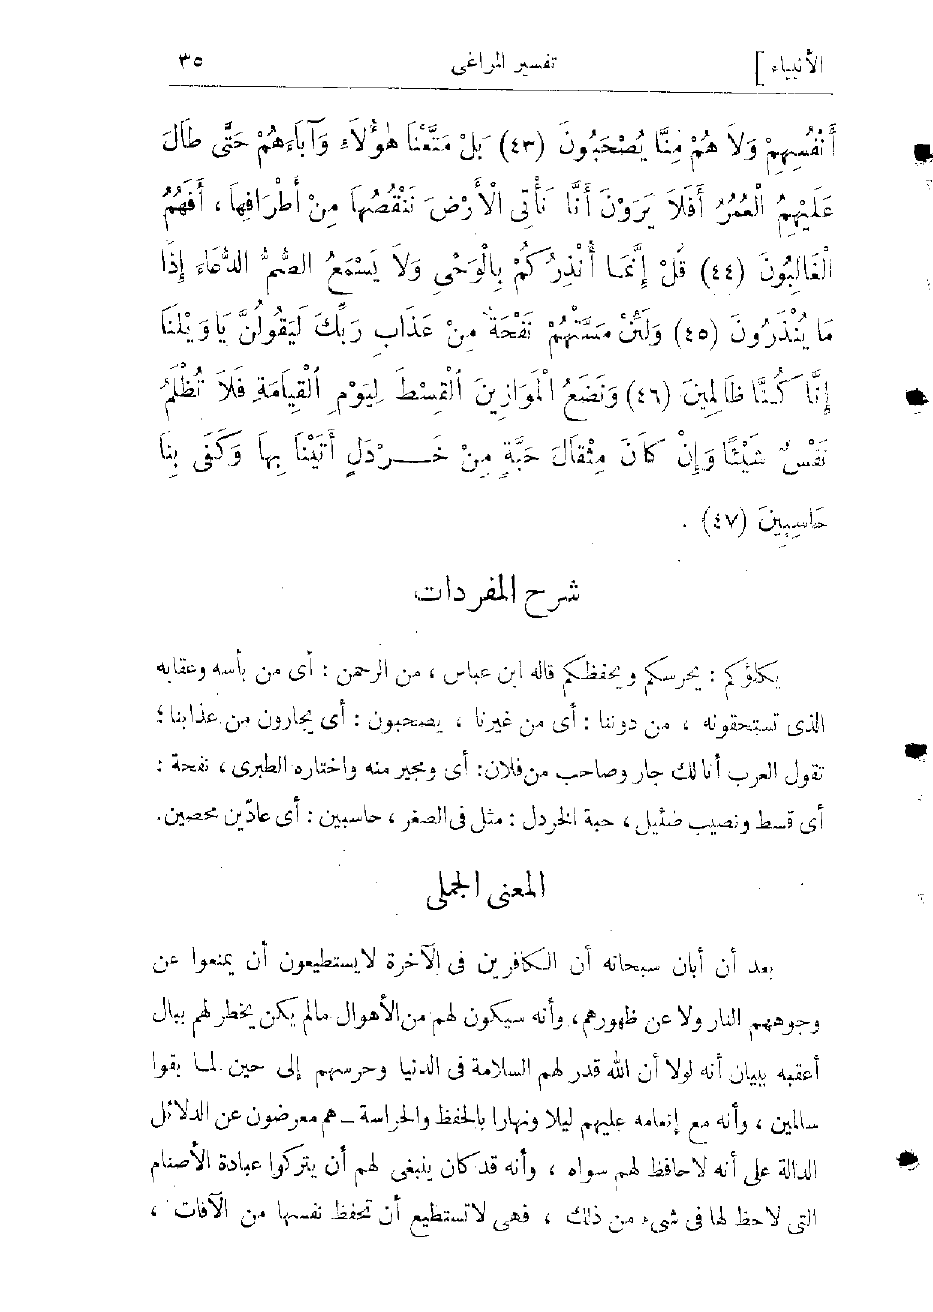 الأنبياء] تفسير المراغى ٣٥
أَنْفُسِهِمْ وَلَا هُمْ مِنَّا يُصْحَبُونَ (٤٣) بَلْ مَتَّعْنَا هٰؤُلَاءِ وَآبَاءَهُمْ حَتَّى طَالَ
عَلَيْهِمُ الْعُمُرُ أَفَلَا يَرَوْنَ أَنَّا نَأْتِى الْأَرْضَ نَنْقُصُهَا مِنْ أَطْرَافِهَا، أَفَهُمُ
الْغَالِبُونَ (٤٤) قُلْ إِنَّمَا أُنْذِرُكُمْ بِالْوَحْىِ وَلَا يَسْمَعُ الصُّمُّ الدُّعَاءَ إِذَا
مَا يُنْذَرُونَ (٤٥) وَلَئِنْ مَسَّتْهُمْ نَفْحَةٌ مِنْ عَذَابِ رَبِّكَ لَيَقُولُنَّ يَا وَيْلَنَا
إِنَّا كُنَّا ظَالِمِينَ (٤٦) وَنَضَعُ الْمَوَازِينَ الْقِسْطَ لِيَوْمِ الْقِيَامَةِ فَلَا تُظْلَمُ
نَفْسٌ شَيْئًا وَإِنْ كَانَ مِثْقَالَ حَبَّةٍ مِنْ خَـرْدَلٍ أَتَيْنَا بِهَا وَكَفَى بِنَا
حَاسِبِينَ (٤٧) .
شرح المفردات
يكلؤكم : يحرسكم ويحفظكم قاله ابن عباس ، من الرحمن : أى من بأسه وعقابه
الذى تستحقونه ، من دوننا : أى من غيرنا ، يصحبون : أى يجارون من عذابنا ؛
تقول العرب أنا لك جار وصاحب من فلان: أى ومجير منه واختاره الطبرى ، نفحة :
أى قسط ونصيب ضئيل ، حبة الخردل : مثل فى الصغر ، حاسبين : أى عادّين محصين.
المعنى الجملى
بعد أن أبان سبحانه أن الكافرين فى الآخرة لا يستطيعون أن يمنعوا عن
وجوههم النار ولا عن ظهورهم، وأنه سيكون لهم من الأهوال مالم يكن يخطر لهم ببال
أعقبه ببيان أنه لولا أن الله قدر لهم السلامة فى الدنيا وحرسهم إلى حين لما بقوا
سالمين ، وأنه مع إنعامه عليهم ليلا ونهارا بالحفظ والحراسة ــ هم معرضون عن الدلائل
الدالة على أنه لا حافظ لهم سواه ، وأنه قد كان ينبغى لهم أن يتركوا عبادة الأصنام
التى لا حظ لها فى شىء من ذلك ، فهى لا تستطيع أن تحفظ نفسها من الآفات ،